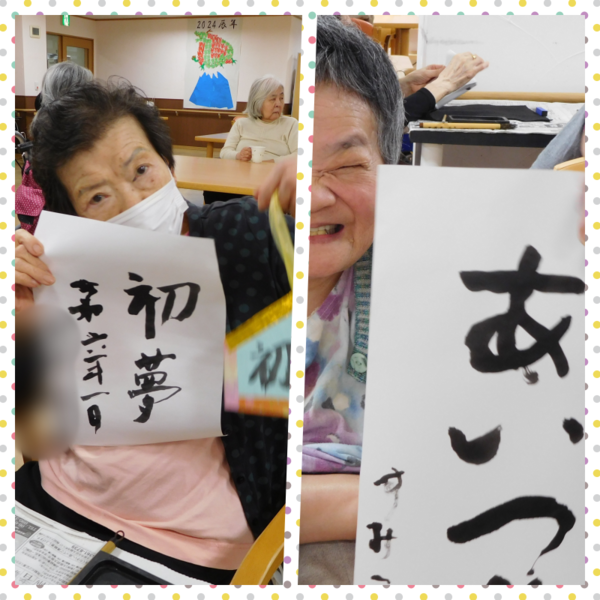 2024辰年
初夢
六年一月
初
あいつ
かみ